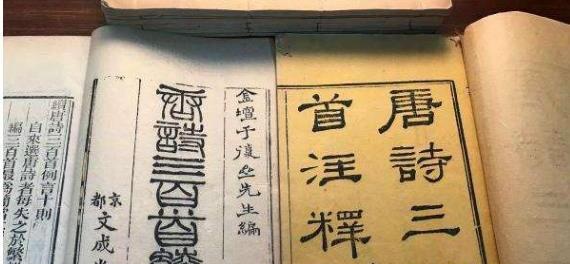 唐詩三
首注釋
金壇于復先生編
唐詩三百首續
京都文成
續唐詩三百首例言十則
自來選唐詩者每失之於繁
編三百首最為簡當